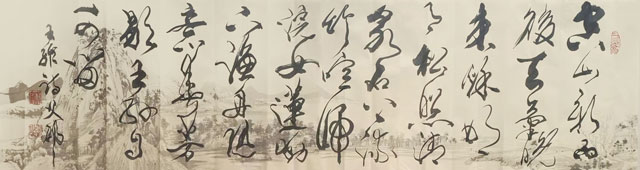 空山新雨
後天氣晚
来秋明
月松照清
泉石上流
竹喧归
浣女蓮動
下漁舟随
意春芳
歇王孙自
可留
王維詩